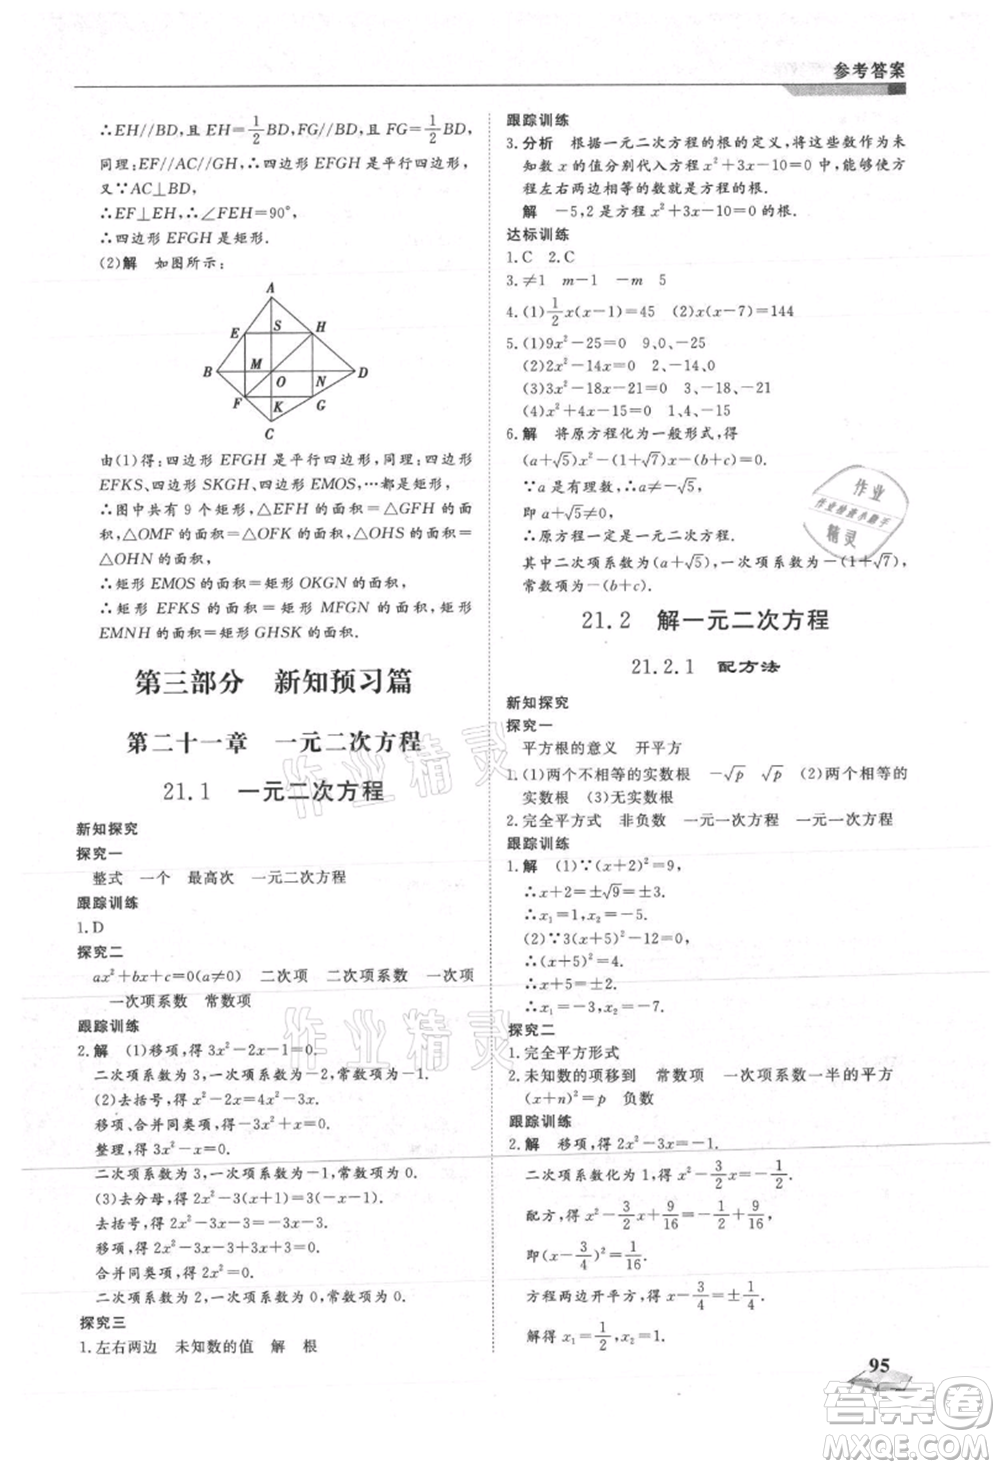 参考答案
∴EH//BD,且 EH=1/2BD,FG//BD,且 FG=1/2BD,
同理:EF//AC//GH,∴四边形 EFGH 是平行四边形,
又∵AC⊥BD,
∴EF⊥EH,∴∠FEH=90°,
∴四边形 EFGH 为矩形.
(2)解 如图所示:
A
E S H
B M O N D
F K G
C
由(1)得:四边形 EFGH 是平行四边形,同理:四边形
EFKS,四边形 SKGH,四边形 EMOS,…都是矩形,
∴图中共有 9 个矩形,△EFH 的面积=△GFH 的面
积,△OMF 的面积=△OFK 的面积,△OHS 的面积=
△OHN 的面积,
∴矩形 EMOS 的面积=矩形 OKGN 的面积,
∴矩形 EFKS 的面积=矩形 MFGN 的面积,矩形
EMNH 的面积=矩形 GHSK 的面积.
第三部分 新知预习篇
第二十一章 一元二次方程
21.1 一元二次方程
新知探究
探究一
整式 一个 最高次 一元二次方程
跟踪训练
1.D
探究二
ax²+bx+c=0(a≠0) 二次项 二次项系数 一次项
一次项系数 常数项
跟踪训练
2.解 (1)移项,得 3x²-2x-1=0.
二次项系数为 3,一次项系数为-2,常数项为-1.
(2)去括号,得 2x-4x²=-3x.
移项、合并同类项,得-4x²+5x=0.
整理,得 4x²-5x=0.
二次项系数为 4,一次项系数为-5,常数项为 0.
(3)去分母,得 2x²-3(x+1)=3(-x-1).
去括号,得 2x²-3x-3=-3x-3.
移项,得 2x²-3x-3+3x+3=0.
合并同类项,得 2x²=0.
二次项系数为 2,一次项系数为 0,常数项为 0.
探究三
1.左右两边 未知数的值 解 根
跟踪训练
3.分析 根据一元二次方程的根的定义,将这些数作为未
知数 x 的值分别代入方程 x²+3x-10=0 中,能够使方
程左右两边相等的数就是方程的根.
解 -5,2 是方程 x²+3x-10=0 的根.
达标训练
1.C 2.C
3.≠1 m-1 -m 5
4.(1)1/2x(x-1)=45 (2)x(x-7)=144
5.(1)9x²-25=0 9、0、-25
(2)2x²-x=0 2、-1、0
(3)3x²-18x-21=0 3、-18、-21
(4)x²+4x-15=0 1、4、-15
6.解 将原方程化为一般形式,得
(a+√5)x²-(1+√7)x-(b+c)=0.
∵a 是有理数,∴a≠-√5,
即 a+√5≠0.
∴原方程一定是一元二次方程.
其中二次项系数为(a+√5),一次项系数为-(1+√7),
常数项为-(b+c).
21.2 解一元二次方程
21.2.1 配方法
新知探究
探究一
平方根的意义 开平方
1.(1)两个不相等的实数根 -√p √p (2)两个相等的
实数根 (3)无实数根
2.完全平方式 非负数 一元一次方程 一元一次方程
跟踪训练
1.解 (1)∵(x+2)²=9,
∴x+2=±√9=±3.
∴x₁=1,x₂=-5.
(2)∵3(x+5)²=0,
∴(x+5)²=0.
∴x+5=0.
∴x₁=x₂=-5.
探究二
1.完全平方形式
2.未知数的项移到 常数项 一次项系数一半的平方
(x+n)²=p 负数
跟踪训练
2.解 移项,得 2x²-3x=-1.
二次项系数化为 1,得 x²-3/2x=-1/2.
配方,得 x²-3/2x+9/16=-1/2+9/16,
即(x-3/4)²=1/16.
方程两边开平方,得 x-3/4=±1/4.
解得 x₁=1/2,x₂=1.
95
作业
作业检查小助手
精灵
作业精灵
作业精灵
答案卷
MXQE.COM